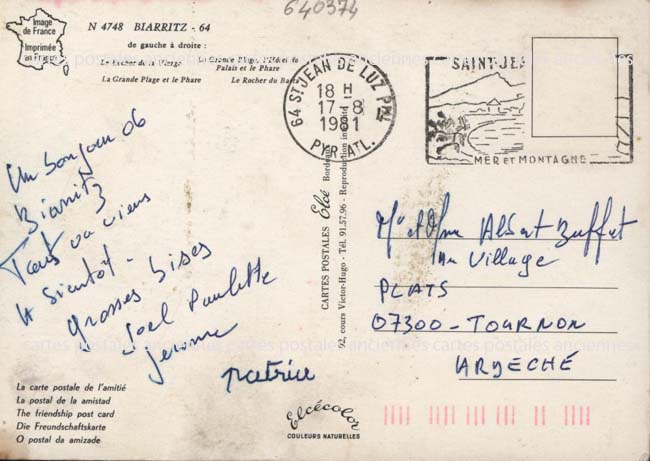 640374
Image
de France
Imprimée
en France
N 4748 BIARRITZ - 64
de gauche à droite :
Le Rocher de la Vierge
La Grande Plage, l'Hôtel du
Palais et le Phare
La Grande Plage et le Phare
Le Rocher du Basta
64 ST JEAN DE LUZ PPAL
18 H
17 - 8
1981
PYR. ATL.
SAINT-JEA
MER ET MONTAGNE
Un bonjour de
Biarritz
Tout va viens
A Bientôt -
grosses bises
Joel Paulette
Jerome
patrice
CARTES POSTALES Elcé Bordeaux
92, cours Victor-Hugo - Tél. 91.57.96 - Reproduction interdite
Mr et Mme Albert Buffat
Au Village
PLATS
07300 - TOURNON
ARDECHE
La carte postale de l'amitié
La postal de la amistad
The friendship post card
Die Freundschaftskarte
O postal da amizade
Elcécolor
COULEURS NATURELLES
cartes postales anciennes